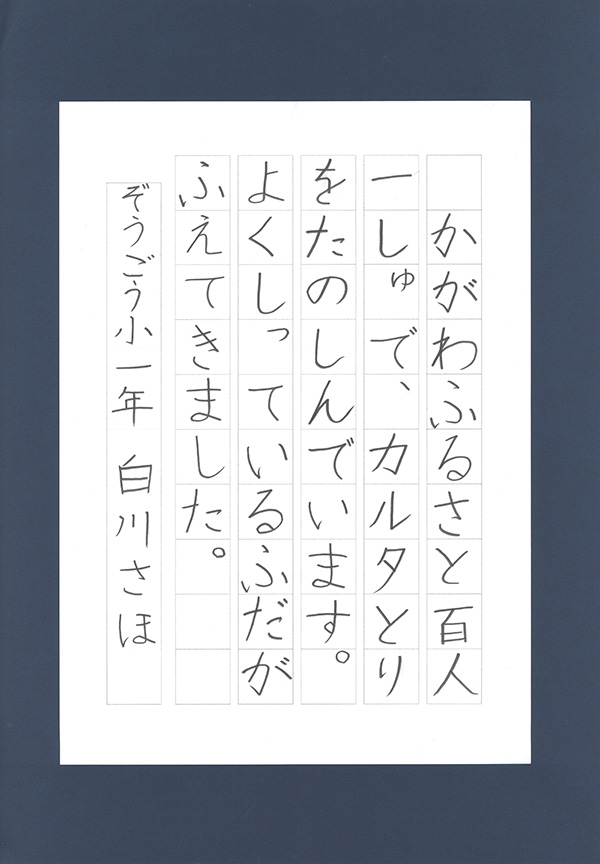 かがわふるさと百人
一しゅで、カルタとり
をたのしんでいます。
よくしっているふだが
ふえてきました。
ぞうごう小一年 白川さほ